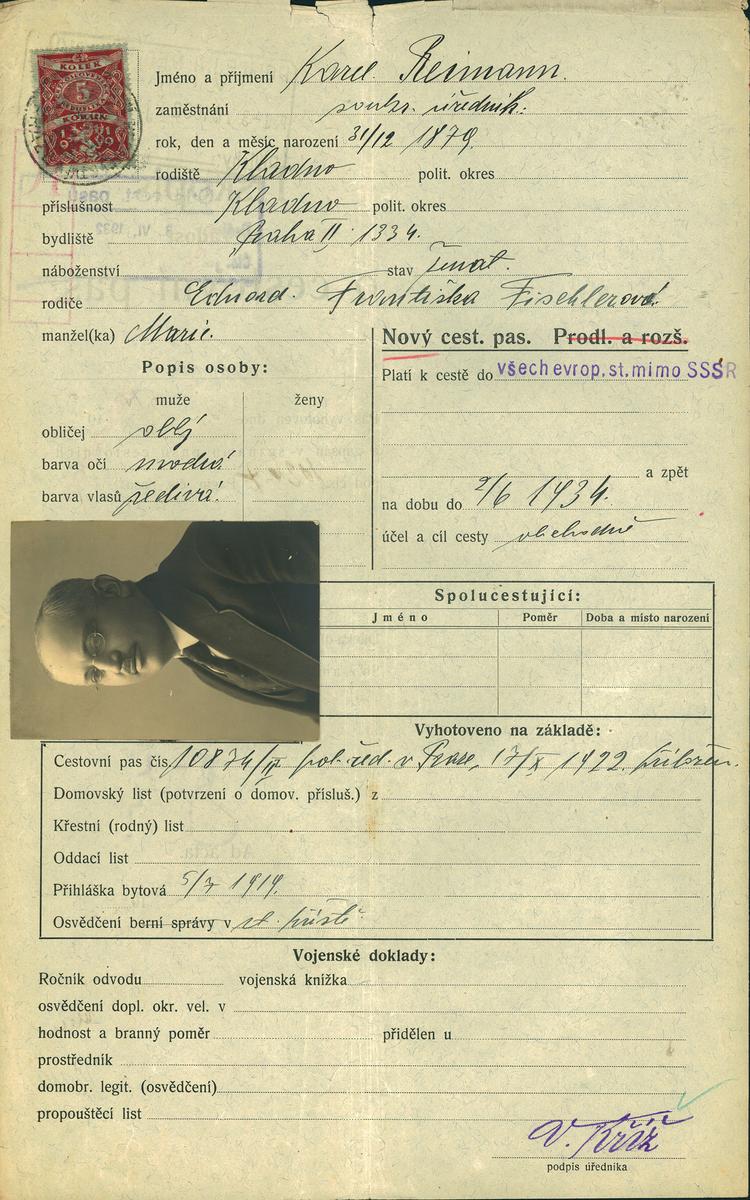 KOLEK
5
KORUN
Jméno a příjmení Karel Reimann.
zaměstnání soukr. úředník.
rok, den a měsíc narození 31/12 1879.
rodiště Kladno polit. okres
příslušnost Kladno polit. okres
bydliště Praha II 1334.
náboženství stav ženat.
rodiče Eduard. Františka Fischlerová.
manžel(ka) Marie.
Nový cest. pas. Prodl. a rozš.
Popis osoby:
Platí k cestě do všech evrop. st. mimo SSSR
muže ženy
obličej oblý
barva očí modrá
a zpět
barva vlasů šedivá.
na dobu do 2/6 1934.
účel a cíl cesty obchodně
Spolucestující:
Jméno Poměr Doba a místo narození
Vyhotoveno na základě:
Cestovní pas čís. 10874/IV pol. řed. v Praze, 17/X 1922.
Domovský list (potvrzení o domov. přísluš.) z
Křestní (rodný) list
Oddací list
Přihláška bytová 5/7 1919.
Osvědčení berní správy v
Vojenské doklady:
Ročník odvodu vojenská knížka
osvědčení dopl. okr. vel. v
hodnost a branný poměr přidělen u
prostředník
domobr. legit. (osvědčení)
propouštěcí list
V. Kříž
podpis úředníka